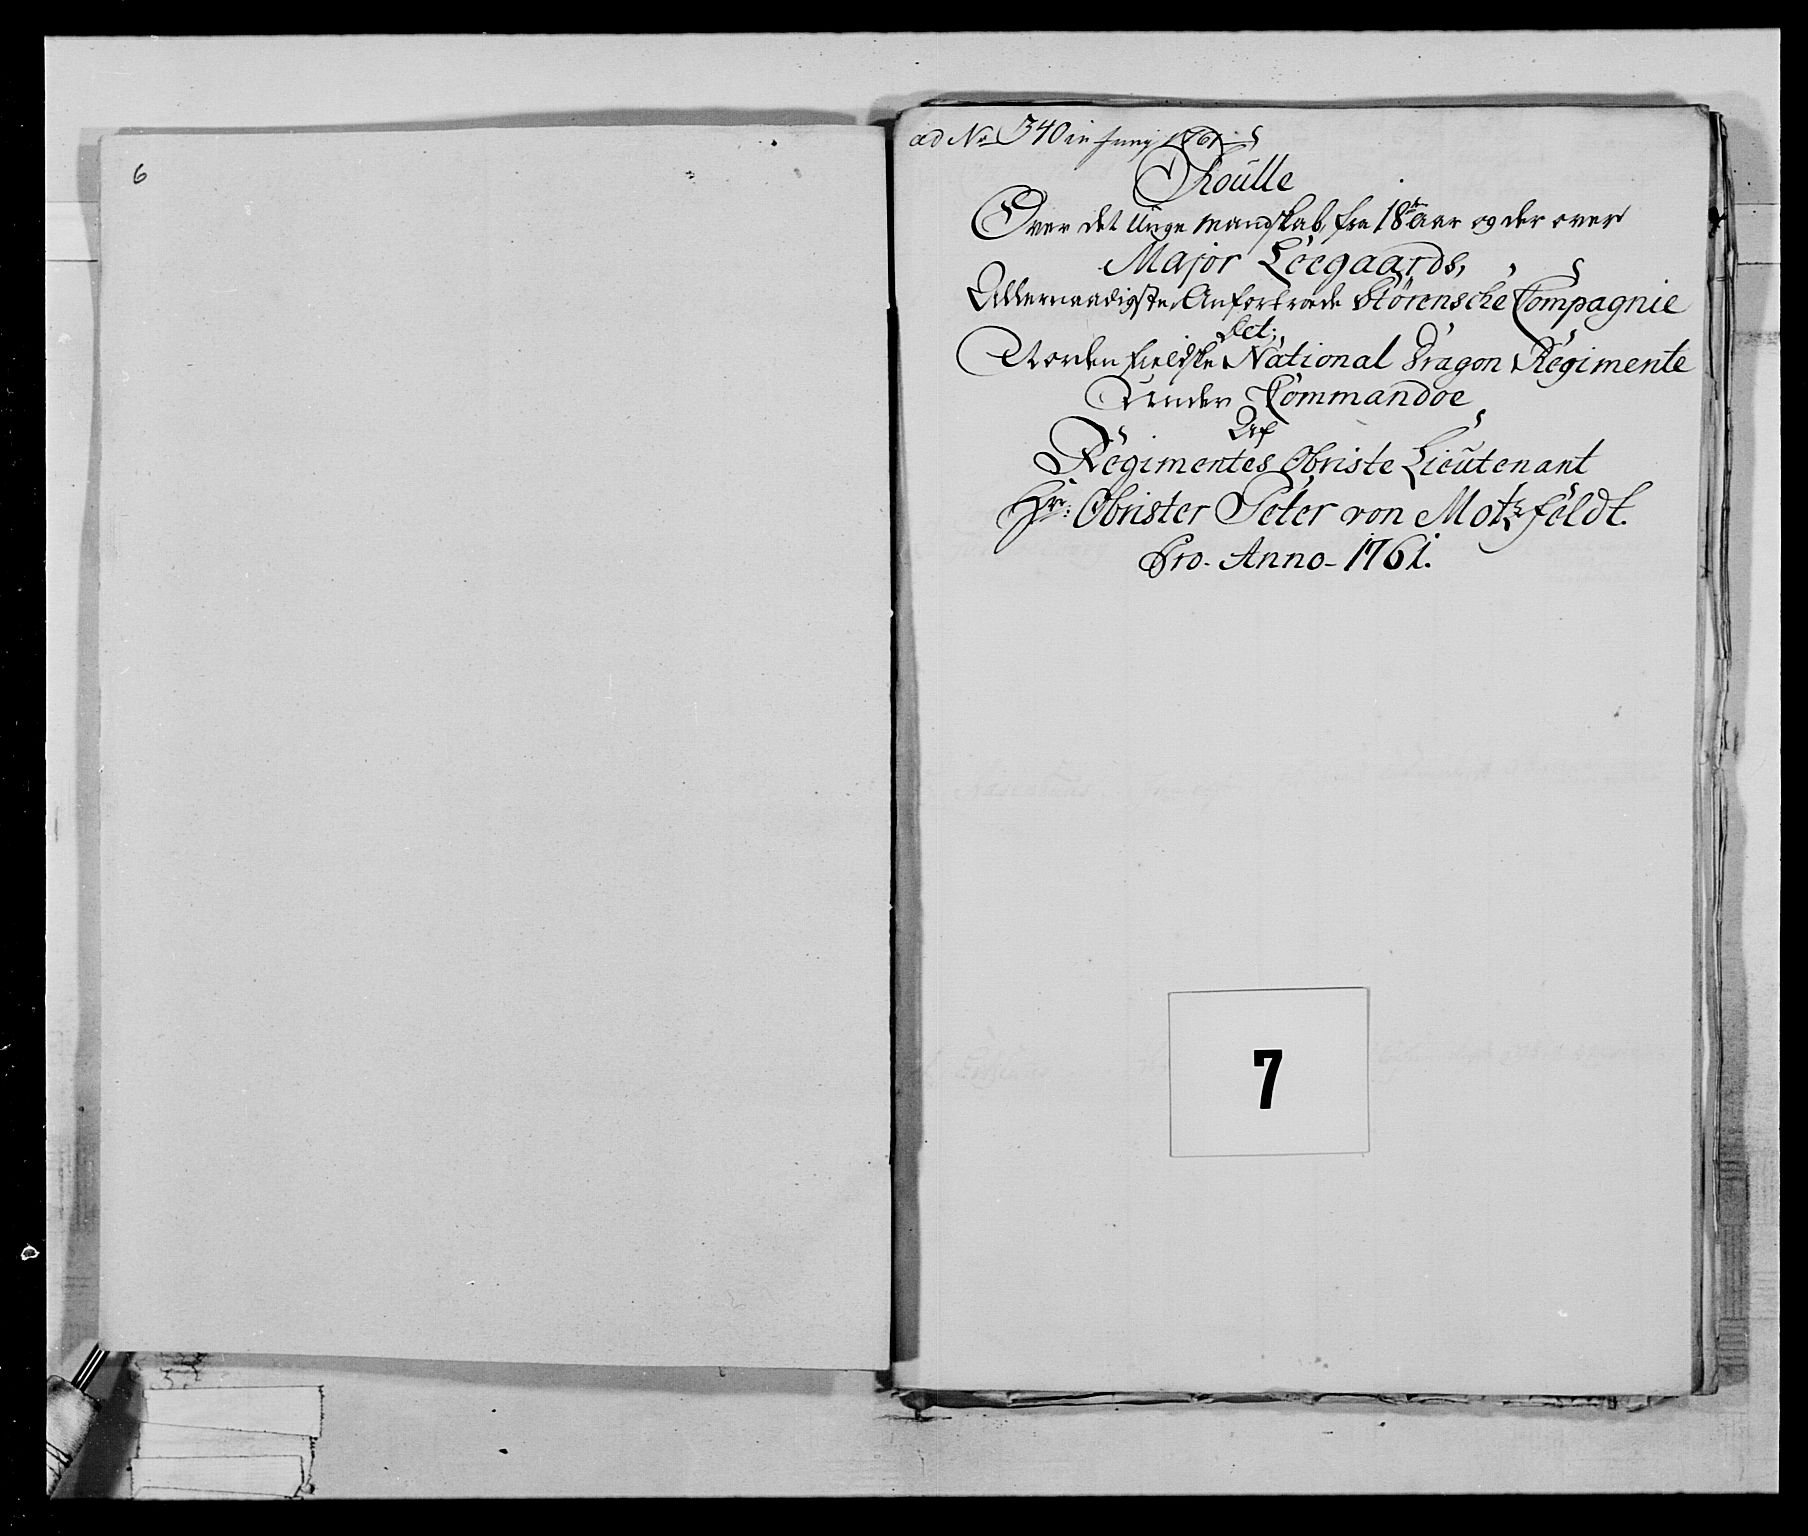 6
ad No 340 in Junij 1761
Roulle
Over det Unge mandskab, fra 18 aar og der over
Major Leegaards,
Allernaadigste Anfortroede Størensche Compagnie
Det
Nordenfieldske National Dragon Regimente
Under Commandoe
Af
Regimentes Obriste Lieutenant
Hr: Obrister Peter von Motzfeldt.
Pro. Anno- 1761.
7